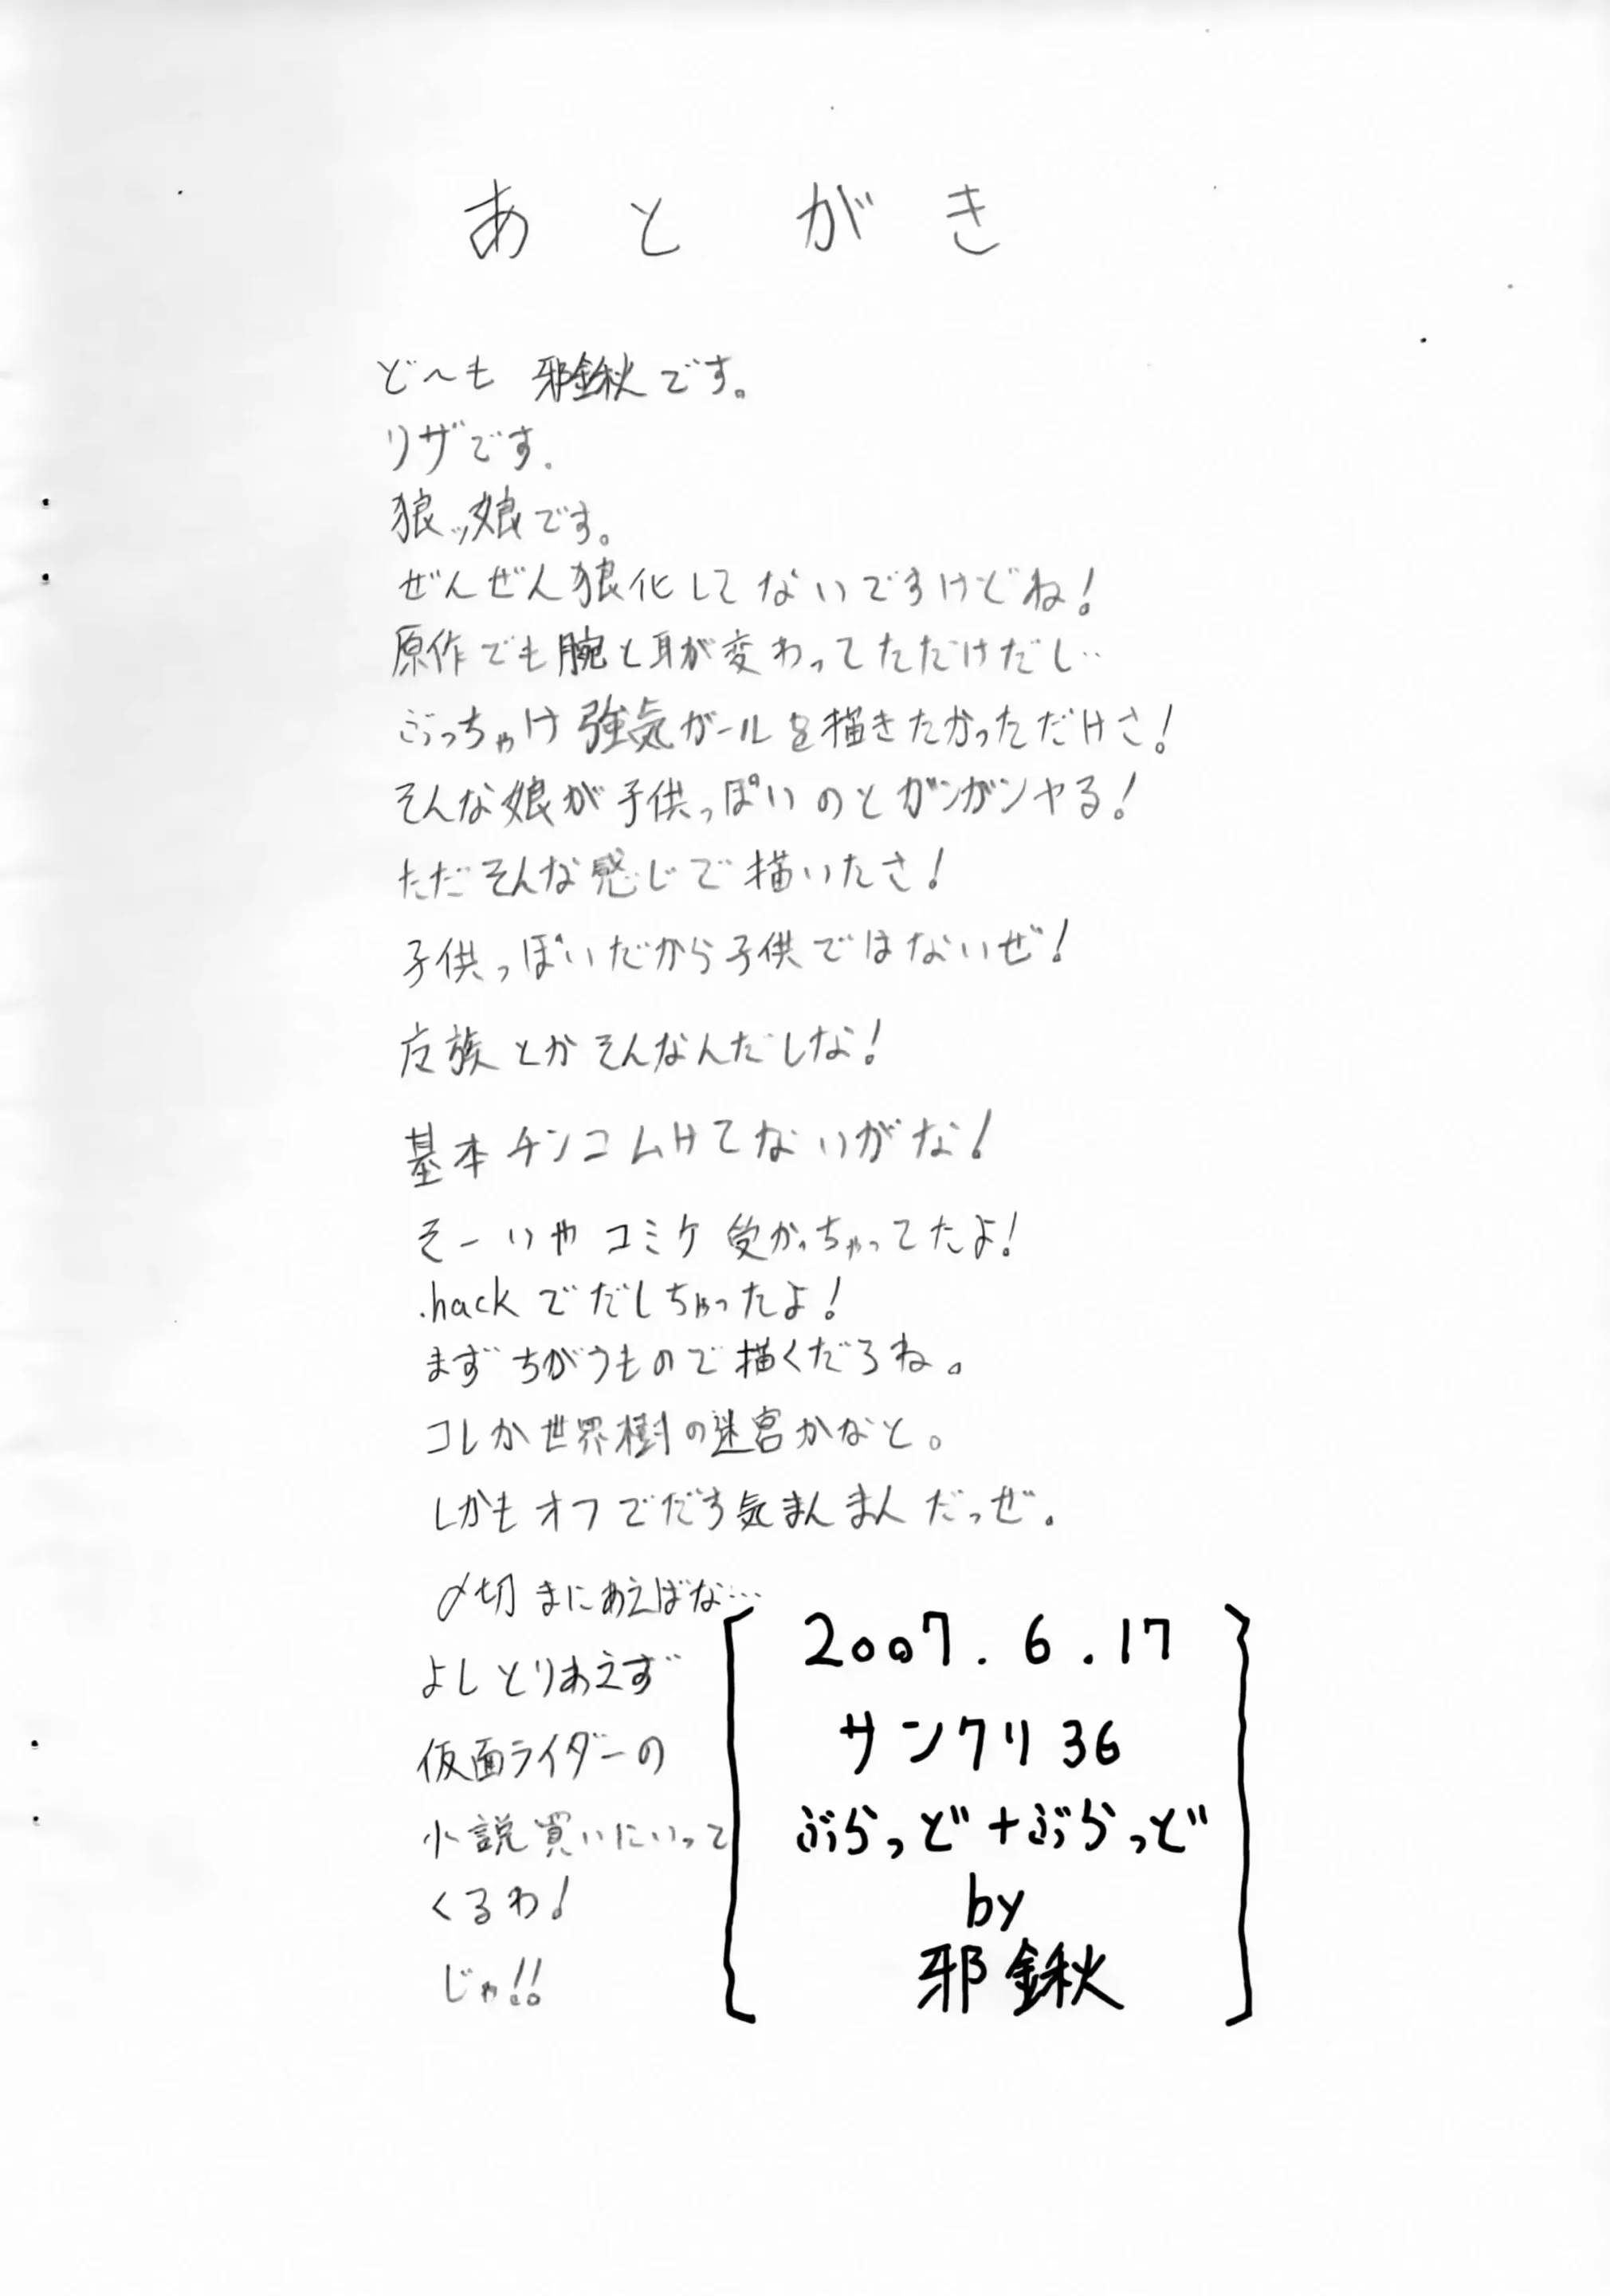 あとがき
ど～も 邪鍬です。
リザです。
狼ッ娘です。
ぜんぜん狼化してないですけどね！
原作でも腕と耳が変わってただけだし‥
ぶっちゃけ強気ガールを描きたかっただけさ！
そんな娘が子供っぽいのとガンガンヤる！
ただそんな感じで描いたさ！
子供っぽいだから子供ではないぜ！
族とかそんなんだしな！
基本チンコムけてないがな！
そーいやコミケ受かっちゃってたよ！
.hackでだしちゃったよ！
まずちがうもので描くだろね。
コレか世界樹の迷宮かなと。
しかもオフでだす気まんまんだっぜ。
〆切まにあえばな…
よしとりあえず
仮面ライダーの
小説買いにいって
くるわ！
じゃ!!
2007.6.17
サンクリ36
ぶらっど+ぶらっど
by
邪